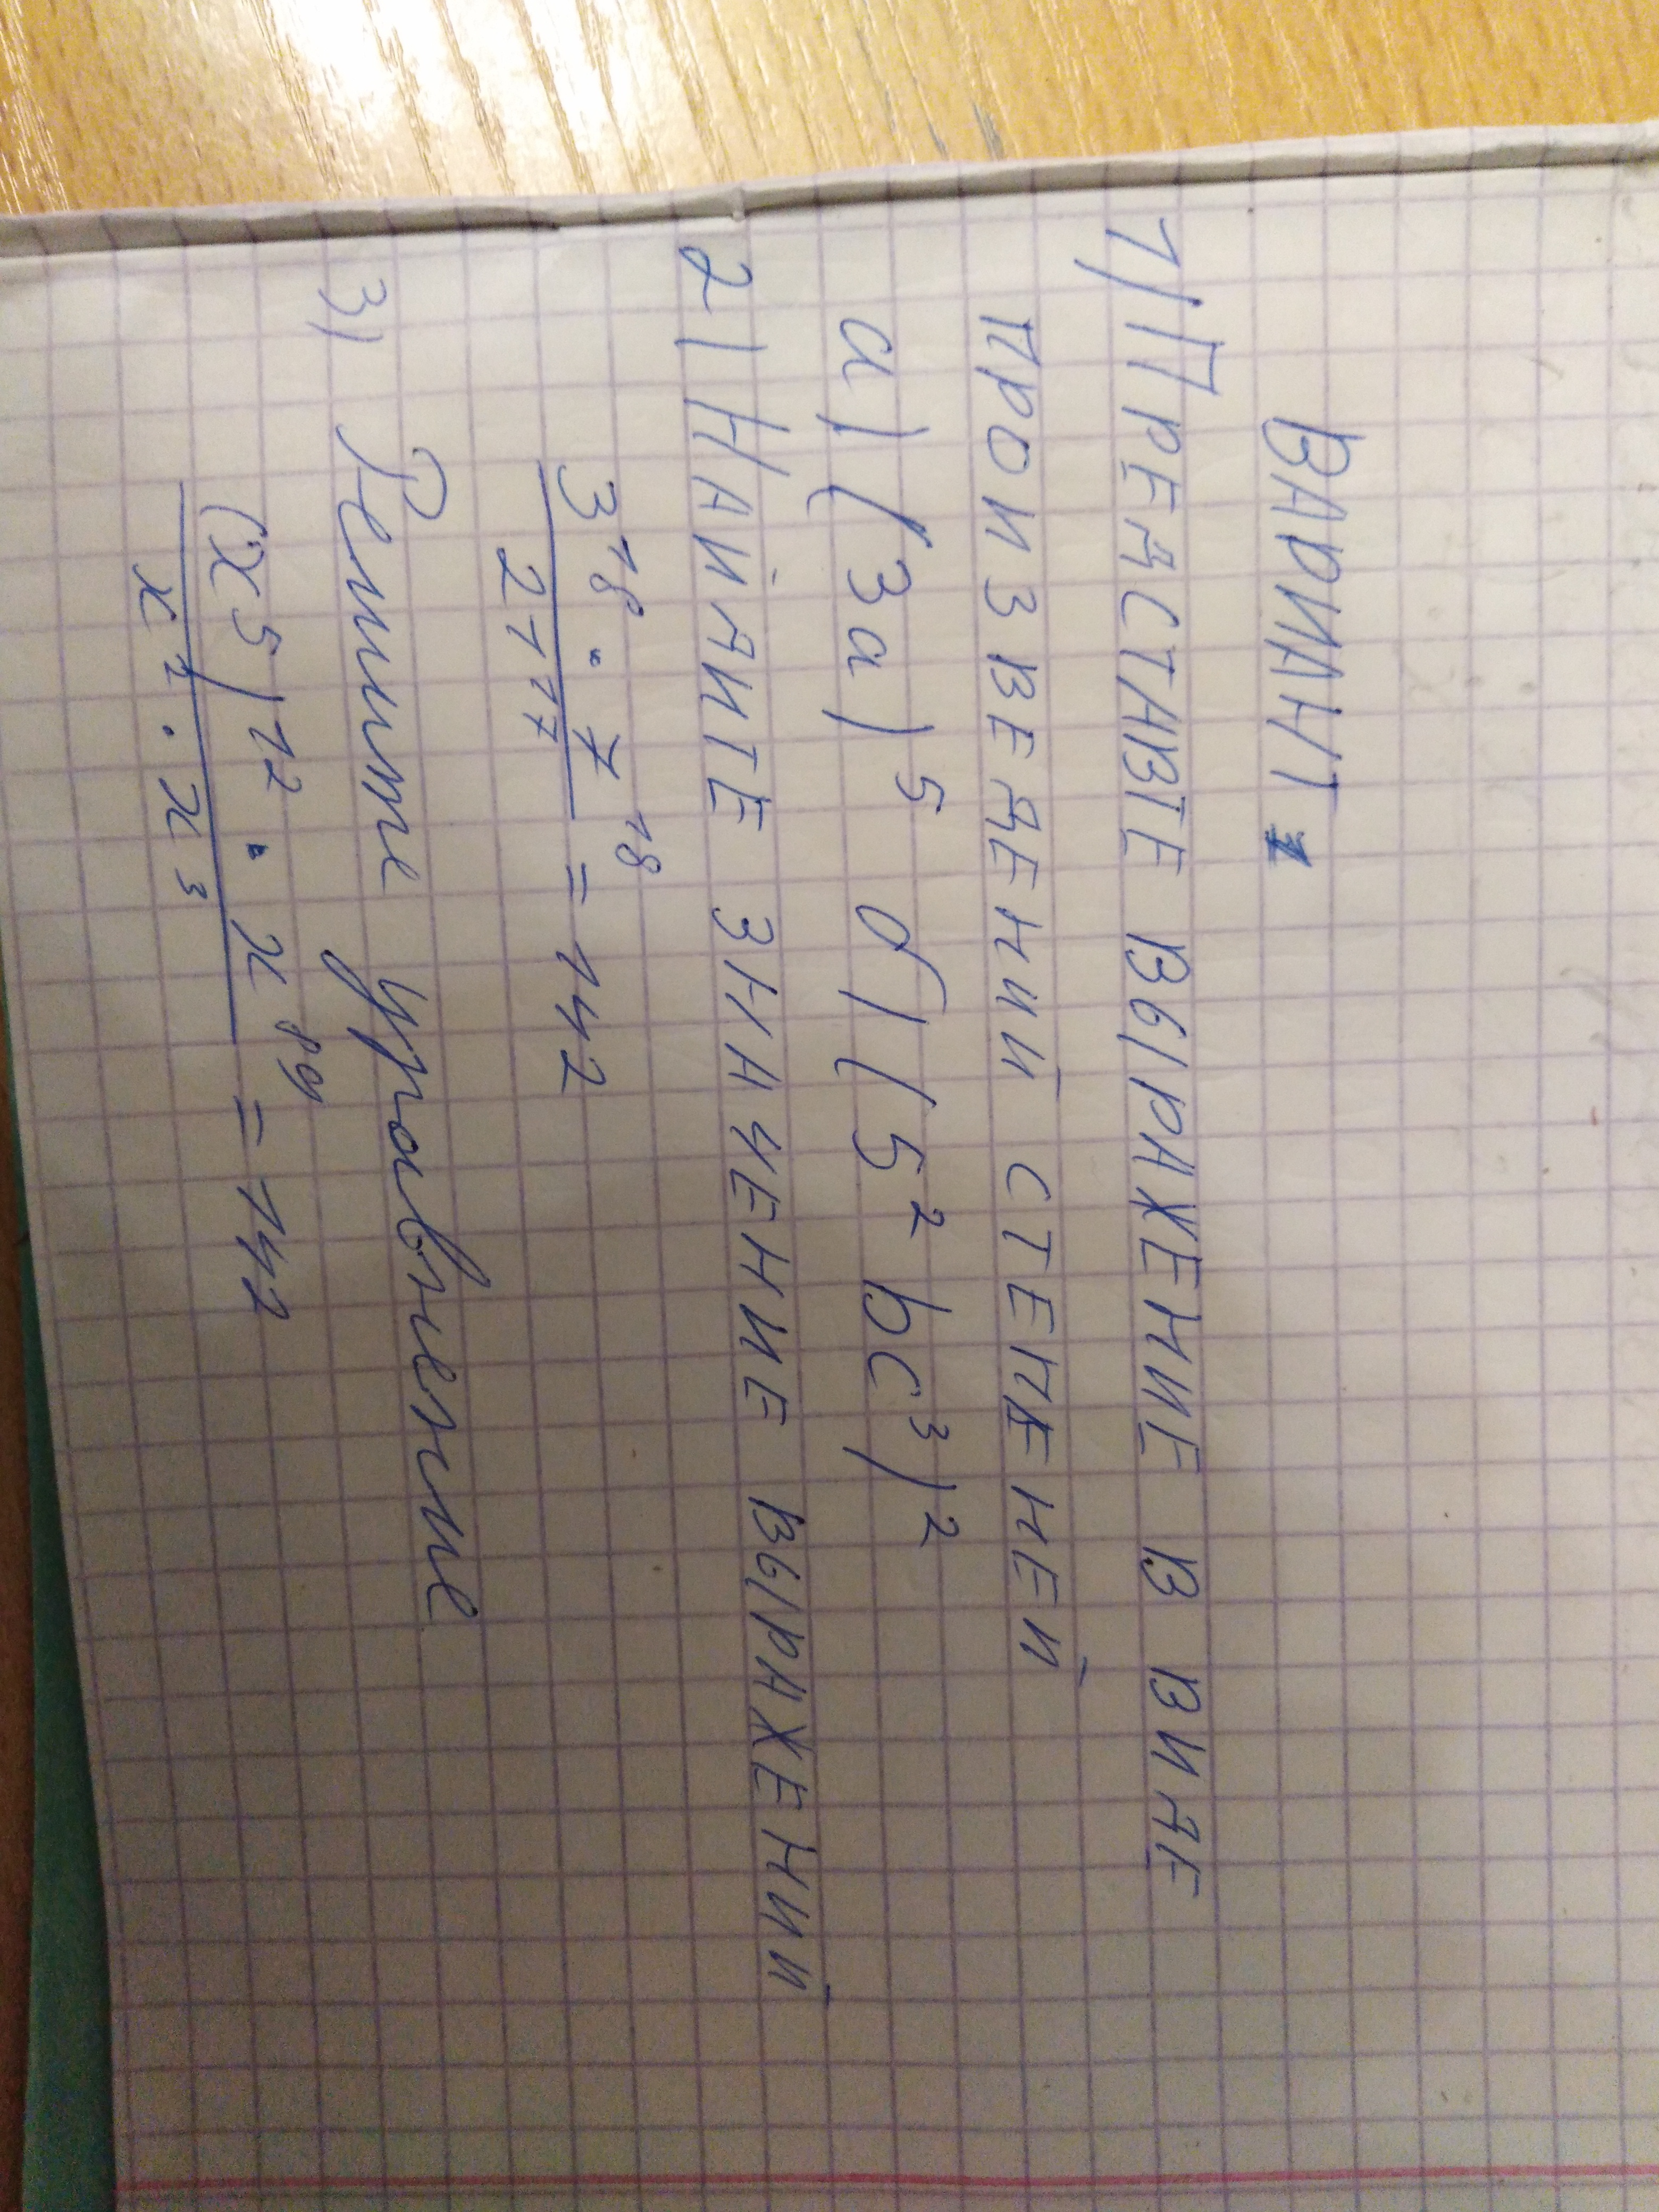 ВАРИАНТ 1
1) ПРЕДСТАВТЕ ВЫРАЖЕНИЕ В ВИДЕ
ПРОИЗВЕДЕНИЙ СТЕПЕНЕЙ
а) (3a)⁵ б) (5²bc³)²
2) НАЙДИТЕ ЗНАЧЕНИЕ ВЫРАЖЕНИЙ
3¹⁸ · 7¹⁸ = 142
21¹⁷
3) Решите уравнение
(x⁵)¹² · x⁸⁹ = 142
x² · x³